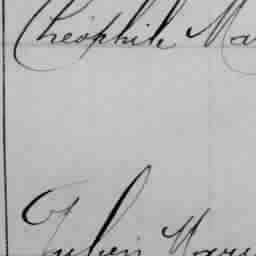 Théophile Ma
Julien Mari